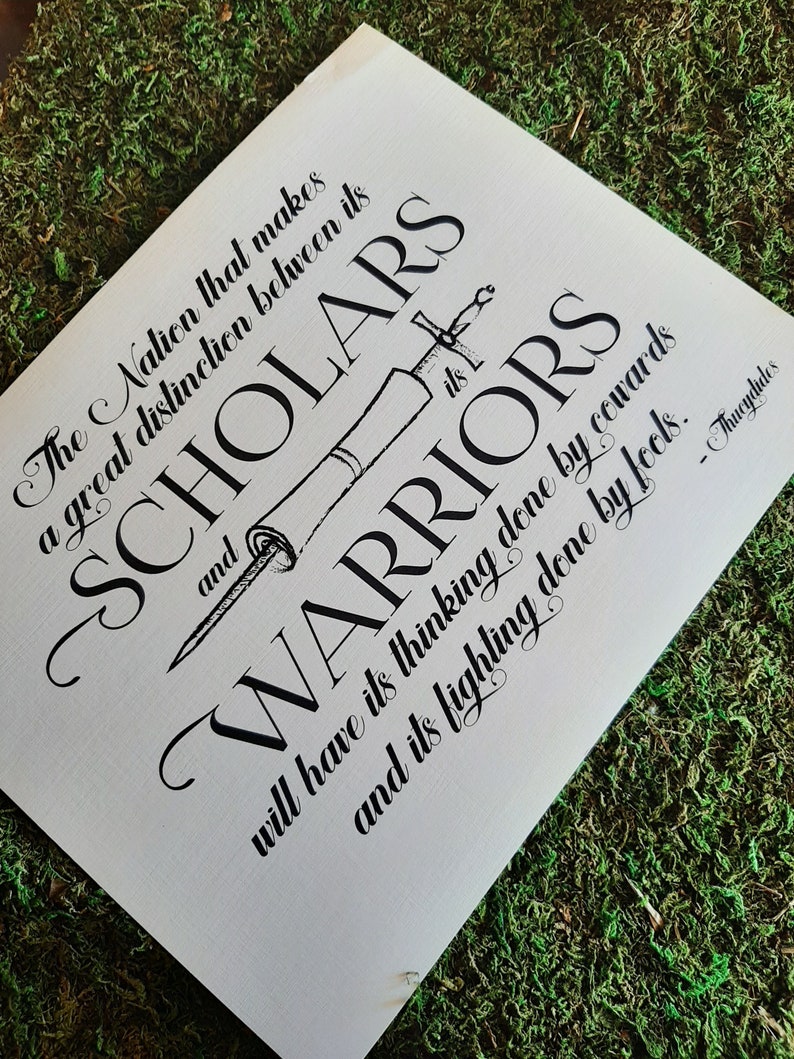 The Nation that makes
a great distinction between its
SCHOLARS
and its
WARRIORS
will have its thinking done by cowards
and its fighting done by fools.
- Thucydides